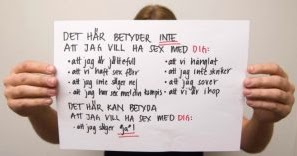 DET HÄR BETYDER INTE
ATT JAG VILL HA SEX MED DIG:
• att jag är jättefull
• att vi hånglat
• att vi haft sex förr
• att jag inte skriker
• att jag inte säger nej
• att jag sover
• att jag har sex med din kompis
• att vi är ihop
DET HÄR KAN BETYDA
ATT JAG VILL HA SEX MED DIG:
• att jag säger "ja"!